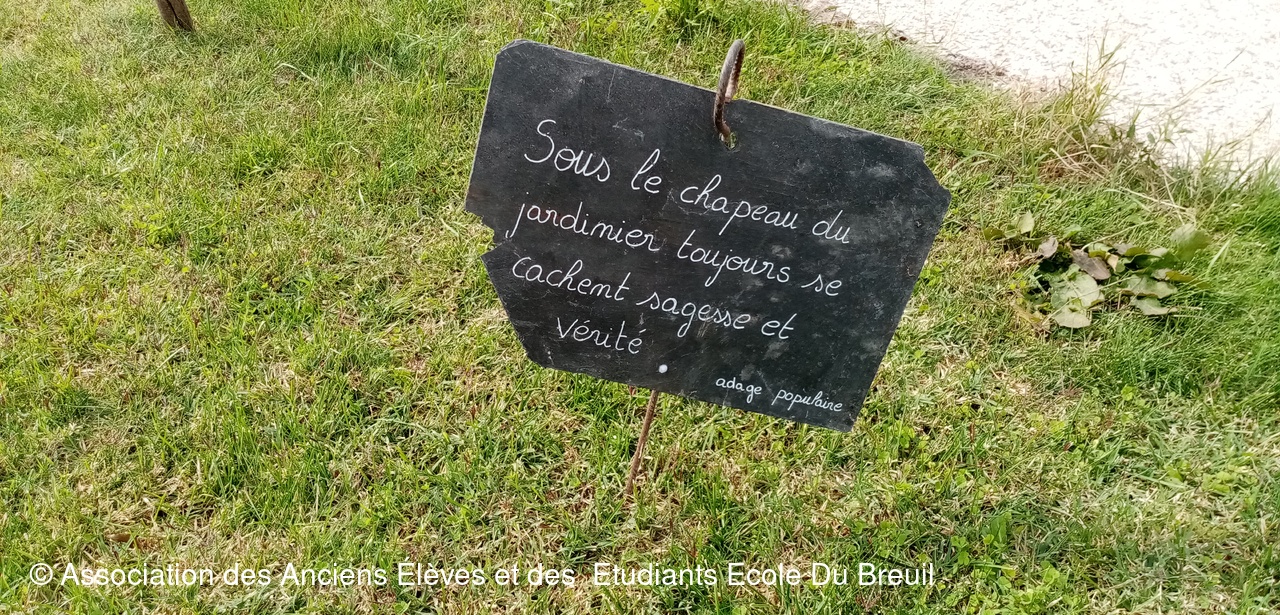 Sous le chapeau du
jardinier toujours se
cachent sagesse et
vérité.
adage populaire
© Association des Anciens Elèves et des Etudiants Ecole Du Breuil